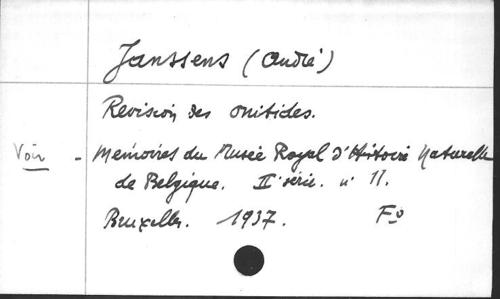 Janssens (André)
Revision des onitides.
Voir - Mémoires du Musée Royal d'Histoire Naturelle
de Belgique. IIe série. n° 11.
Bruxelles. 1937. F°